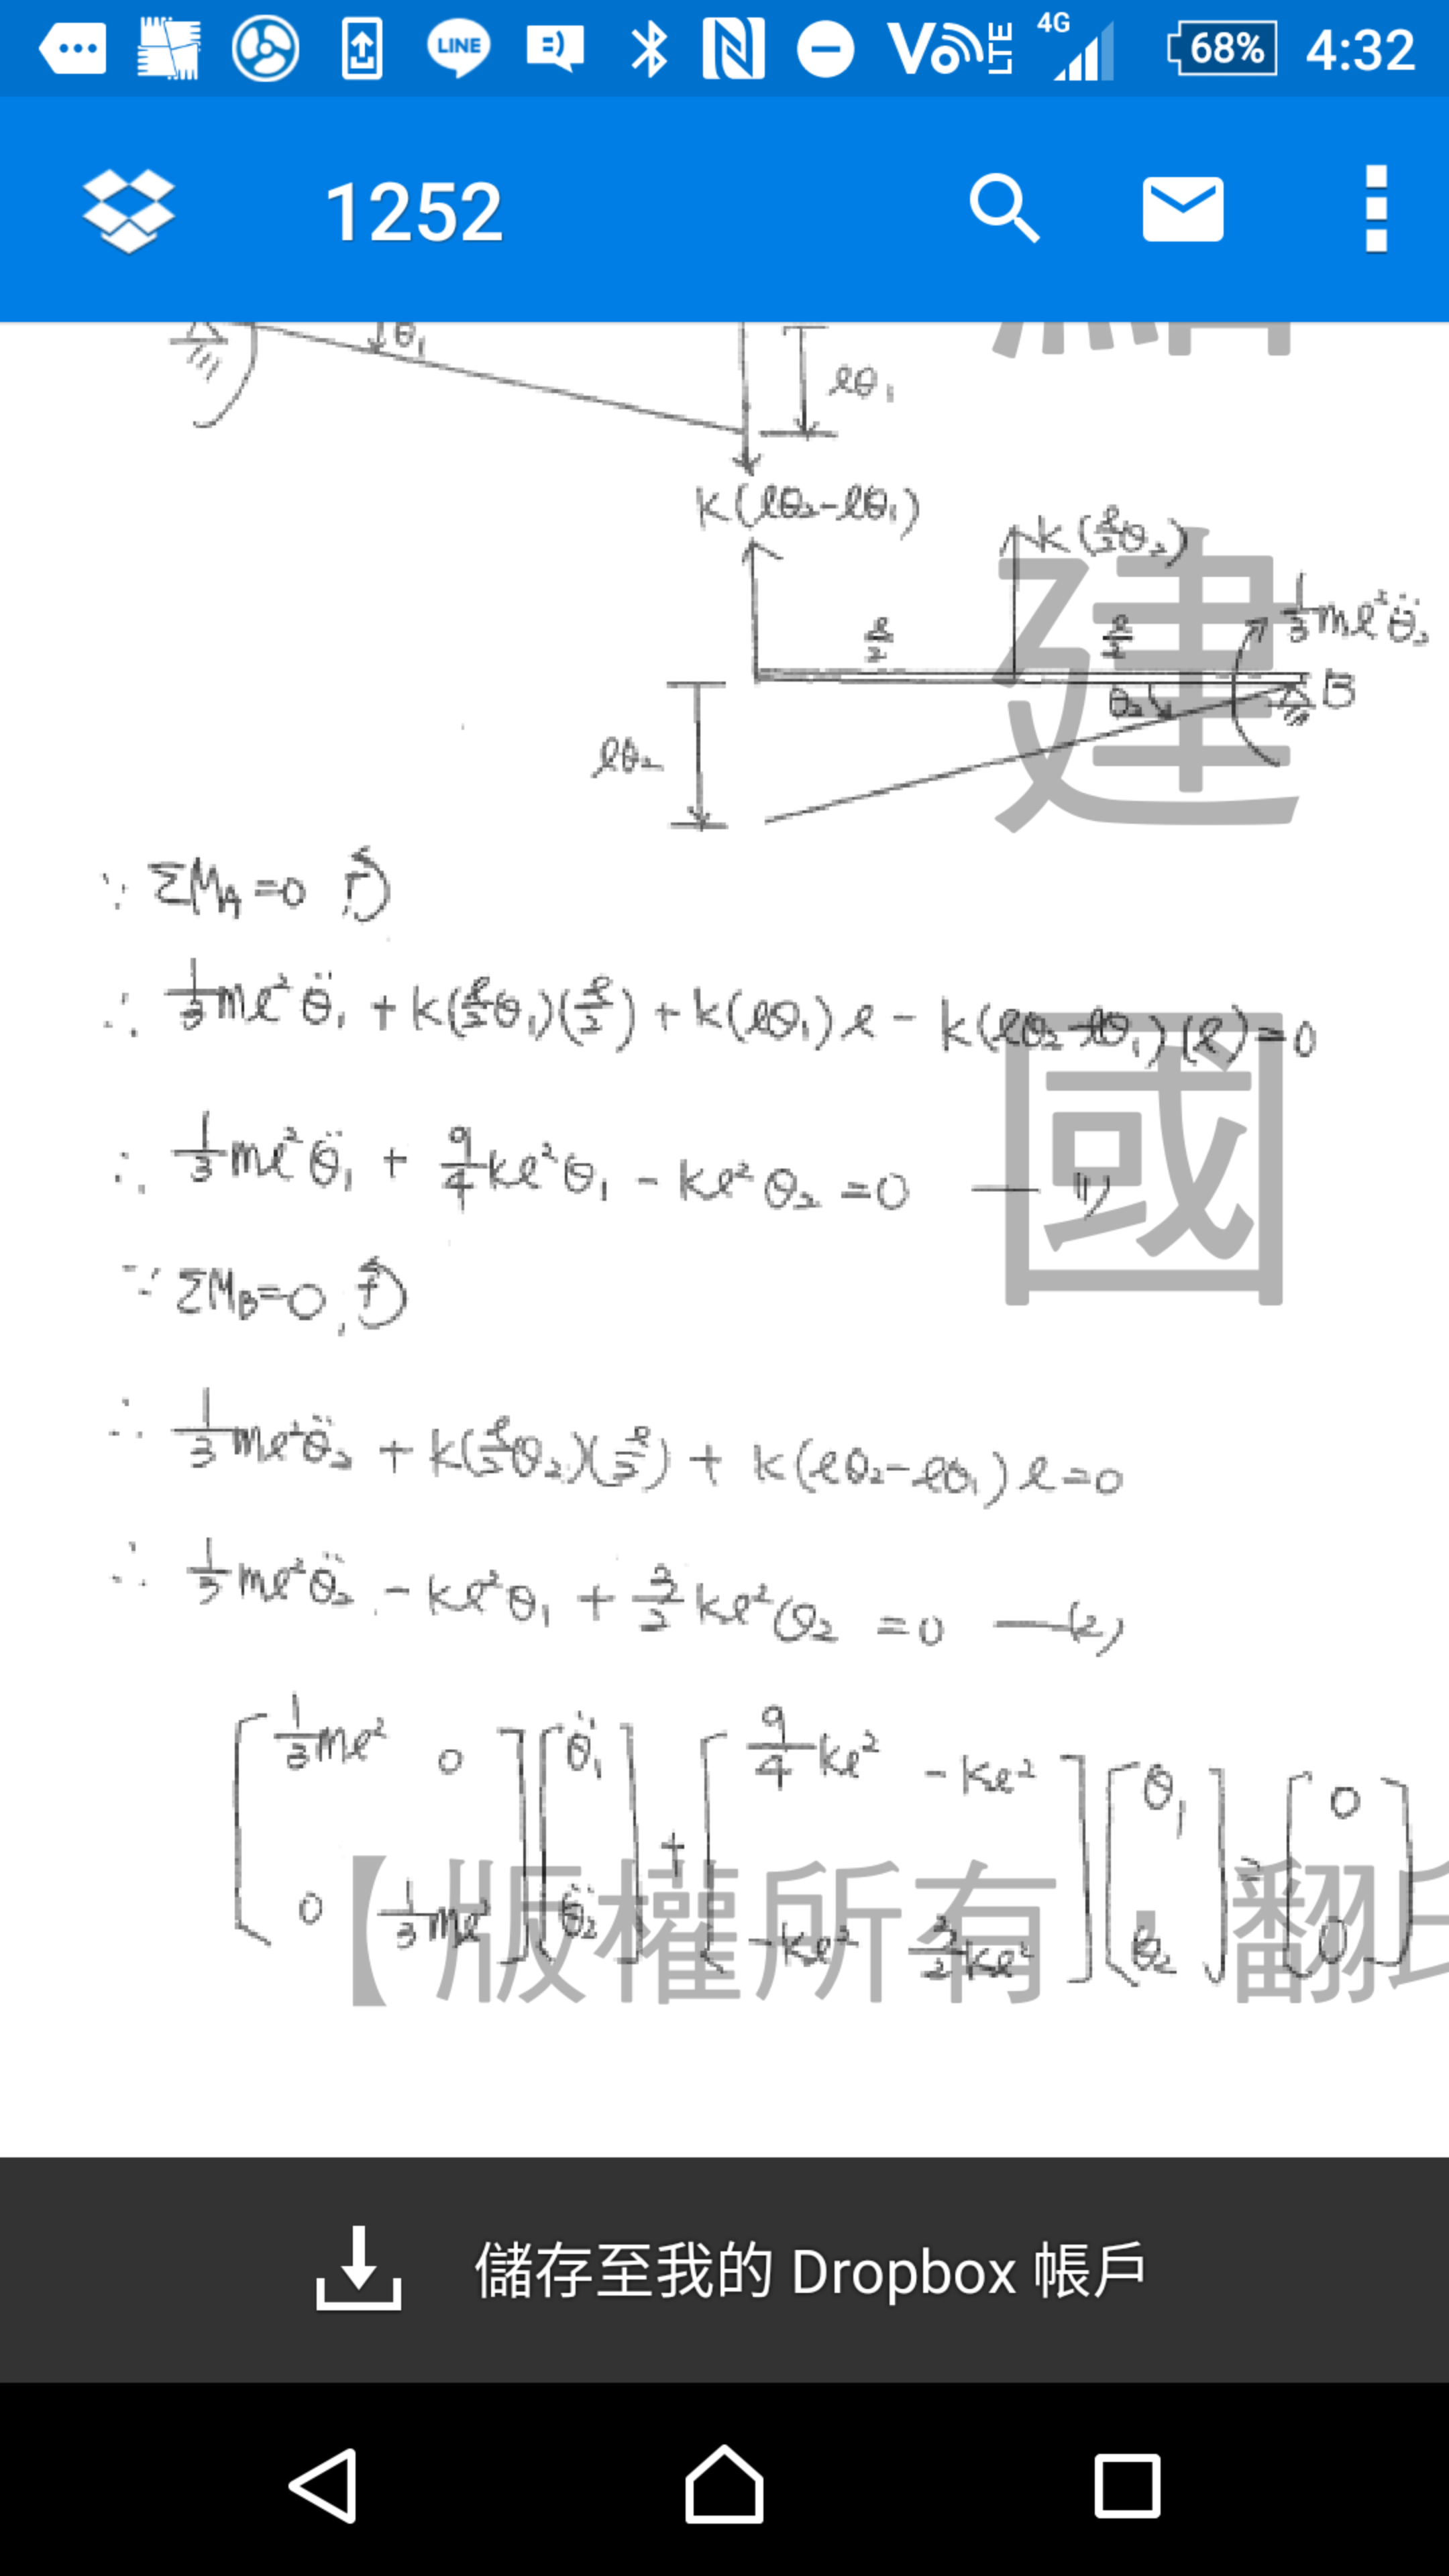 LINE VoLTE 4G 68% 4:32
1252
θ₁
ℓθ₁
k(ℓθ₂-ℓθ₁)
k(ℓ/2 θ₂)
建
ℓ/2 ℓ/2 1/3 mℓ²θ̈₂
θ₂ B
ℓθ₂
∵ ΣM_A=0
∴ 1/3 mℓ²θ̈₁ + k(ℓ/2 θ₁)(ℓ/2) + k(ℓθ₁)ℓ - k(ℓθ₂-ℓθ₁)(ℓ)=0
國
∴ 1/3 mℓ²θ̈₁ + 9/4 kℓ²θ₁ - kℓ²θ₂ =0 — (1)
∵ ΣM_B=0,
∴ 1/3 mℓ²θ̈₂ + k(ℓ/2 θ₂)(ℓ/2) + k(ℓθ₂-ℓθ₁)ℓ=0
∴ 1/3 mℓ²θ̈₂ - kℓ²θ₁ + 3/2 kℓ²θ₂ =0 —(2)
[1/3 mℓ² 0] [θ̈₁] + [9/4 kℓ² -kℓ²] [θ₁] = [0]
[0 1/3 mℓ²] [θ̈₂] [-kℓ² 3/2 kℓ²] [θ₂] [0]
【版權所有，翻
儲存至我的 Dropbox 帳戶